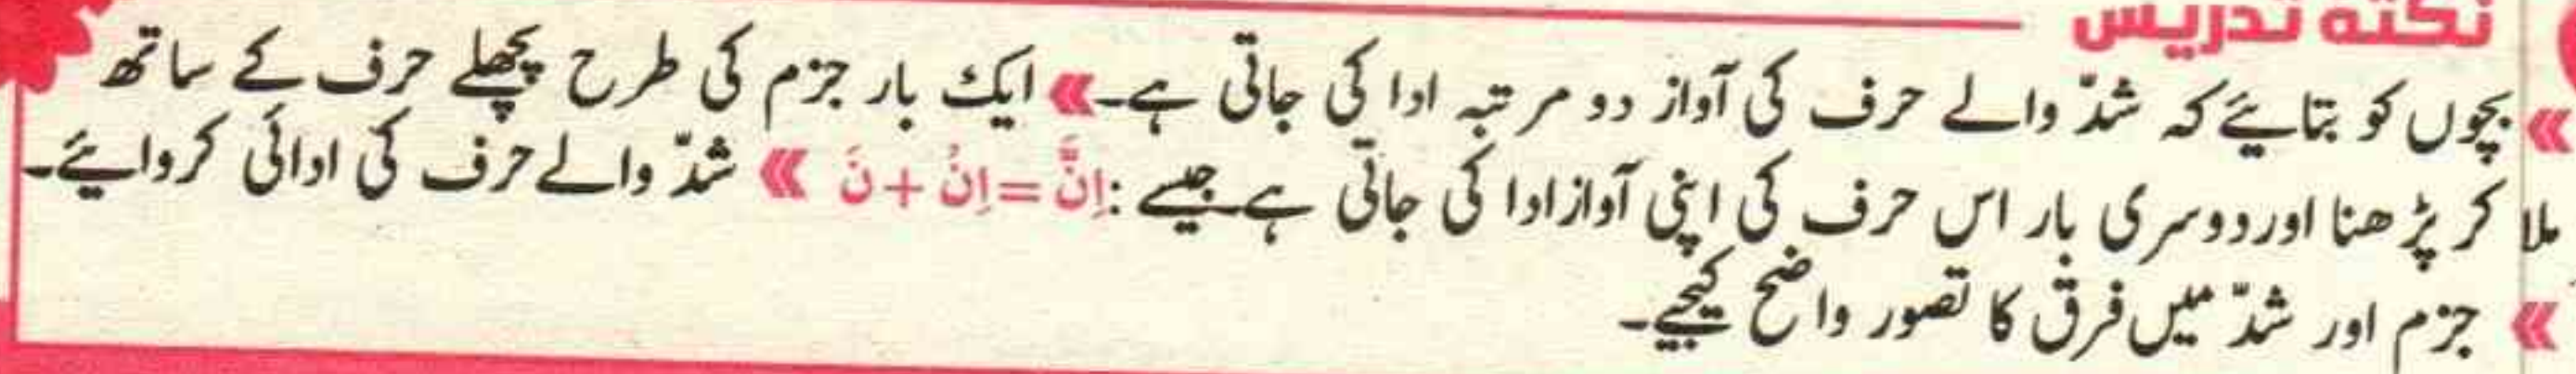 نکتہ تدریس
» بچوں کو بتایئے کہ شدّ والے حرف کی آواز دو مرتبہ ادا کی جاتی ہے۔ » ایک بار جزم کی طرح پچھلے حرف کے ساتھ
ملا کر پڑھنا اور دوسری بار اس حرف کی اپنی آواز ادا کی جاتی ہے جیسے : اِنَّ = اِنْ + نَ » شدّ والے حرف کی ادائی کروایئے۔
» جزم اور شدّ میں فرق کا تصور واضح کیجیے۔